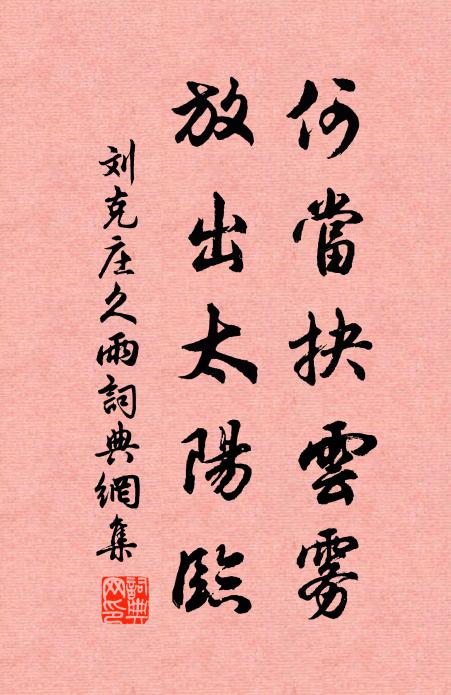 何當抉雲霧
放出太陽臨
刘克庄久雨詞典網集
詞典网印